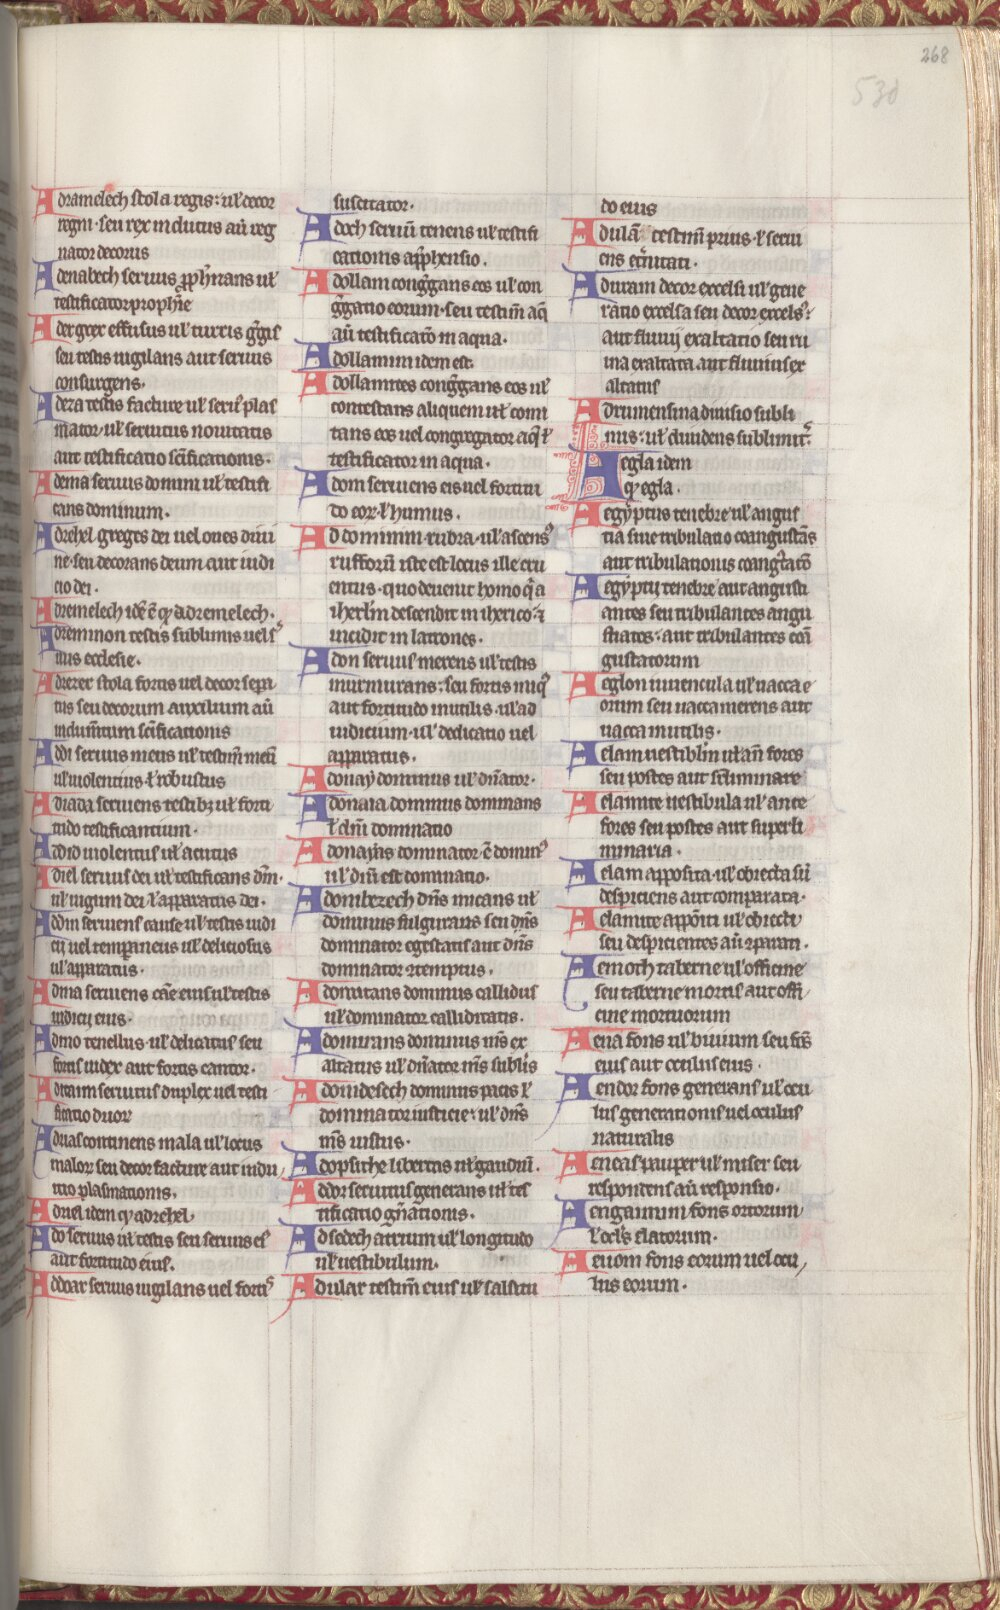 268
530
Adramelech stola regis: ul' decor
regni · seu rex indutus aū reg
nator decorus
Adenabech seruus ꝓph̄tans ul'
testificator proph̄ie
Ader grex effusus ul' turris gͥgis
seu testis uigilans aut seruus
consurgens ·
Adeza testis facture ul' seru᷒ plas
mator · ul' seruitus nouitatis
aut testificatio sc̄ificationis ·
Adema seruus domini ul' testifi
cans dominum ·
Adrehel greges dei uel oues diui
ne · seu decorans deum aut iudi
cio dei ·
Adremelech idē ē qͥ adremelech ·
Adremmon testis sublimis uel
nus ecclesie ·
Adrezer stola fortis uel decor sepa
tus seu decorum auxilium aū
indumētum sc̄ificationis
Addi seruus meus ul' testim̄ meū
ul' uiolentus ł robustus
Adiada seruiens testib᷒ ul' forti
tudo testificantium ·
Addid uiolentus ul' acutus
Adiel seruus dei ul' testificans dm̄ ·
ul' uigum dei ł apparatus dei ·
Addin seruiens cause ul' testis iudi
cij uel temꝑaneus ul' deliciosus
ul' apparatus ·
Adina seruiens cāe eius ul' testis
iudicij eius ·
Admo tenellus · ul' delicatus seu
fortis iudex aut fortis cantor ·
Aditaim seruitus duplex uel testi
ficatio duor
Aduas continens mala ul' locus
malor seu decor facture aut indu
tio plasmationis ·
Adriel idem qͥ adrehel
Ado seruus ul' testis seu seruus ei᷒
aut fortitudo eius ·
Addar seruus uigilans uel fortis
suscitator ·
Adoch seruū tenens ul' testifi
cationis app̄hensio ·
Adollam congͤgans eos ul' con
gͤgatio eorum · seu testim̄ aq̄
aū testificatō in aqua ·
Adollamim idem est ·
Adollamites congͤgans eos ul'
contestans aliquem ul' comi
tans eos uel congregator aq̄ ł
testificator in aqua ·
Adom seruiens eis uel fortitu
do eor ł humus ·
Addommim · rubra · ul' ascens᷒
rufforū iste est locus ille cru
entus · quo deuenit homo qͥ a
iherl'm descendit in iherico · ⁊
incidit in latrones ·
Adon seruus merens ul' testis
murmurans : seu fortis iniq᷒
aut fortitudo inutilis · ul' ad
iudicium · ul' dedicatio uel
apparatus ·
Adonay dominus ul' dn̄ator ·
Adonaia dominus dominans
ł dn̄i dominatio
Adonayas dominator ē domin᷒
ul' dn̄i est dominatio ·
Adonibezech dn̄s micans ul'
dominus fulgurans seu dn̄s
dominator egestatis aut dn̄s
dominator ꝯtemptus ·
Adonicans dominus callidus
ul' dominator calliditatis ·
Adonirans dominus m̄s ex
altatus ul' dn̄ator m̄s sublīs
Adonidesech dominus pacis ł
dominator iusticie : ul' dn̄s
m̄s iustus ·
Adopsithe libertas ul' gaudiū ·
Addor seruitus generans ul' tes
tificatio gn̄ationis ·
Adsedech atrium ul' longitudo
ul' uestibulum ·
Adular testim̄ eius ul' salsitu
do eius
Adulā testim̄ prius · ł serui
ens et̄nitati ·
Aduram decor excelsi ul' gene
ratio excelsa seu decor excels᷒
aut fluuij exaltatio seu ru
ina exaltata aut fluuius ex
altatus
Adrumensina diuisio subli
mis : ul' diuidens sublimit᷒
Aegla idem
qͥ egla ·
Aegyptus tenebre ul' angus
tia siue tribulatio coangustās
aut tribulationis coangͣtatō
Aegyptij tenebre aut angusti
antes seu tribulantes angu
stiates : aut tribulantes coā
gustatorum
Aeglon iuuencula ul' uacca e
orum seu uacca merens aut
uacca inutilis ·
Aelam uestiblm̄ ul' añ fores
seu postes aut sc̄liminare
Aelamite uestibula ul' ante
fores seu postes aut superli
minaria ·
Aelam apposita · ul' obiecta siī
despiciens aut comparata ·
Aelamite appōiti ul' obiecti
seu despicientes aū ꝯparati ·
Aemoth taberne ul' officine
seu taberne mortis aut offi
cine mortuorum
Aena fons ul' biuium seu fōs
eius aut oculus eius ·
Aendor fons generans ul' ocu
lus generationis uel oculus
naturalis
Aeneas pauper ul' miser seu
respondens aū responsio ·
Aengannim fons ortorum
ł ocl's flatorum ·
Aeuom fons eorum uel ocu
lus eorum ·